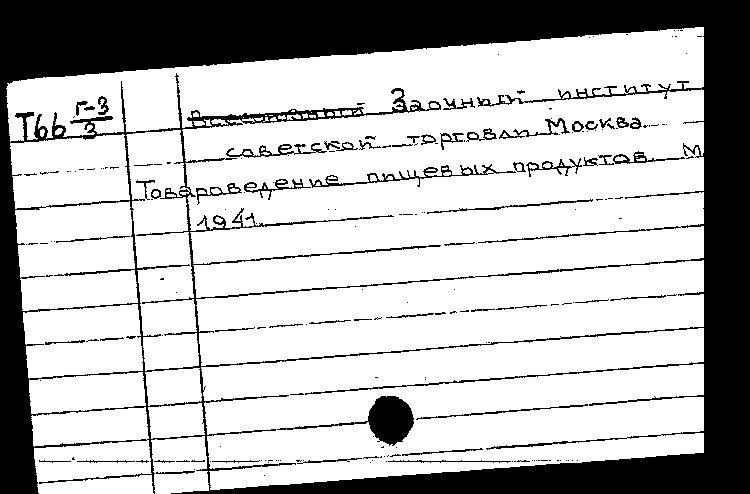 Т66 Г-3/3
Всесоюзный Заочный институт
советской торговли. Москва.
Товароведение пищевых продуктов. М
1941.